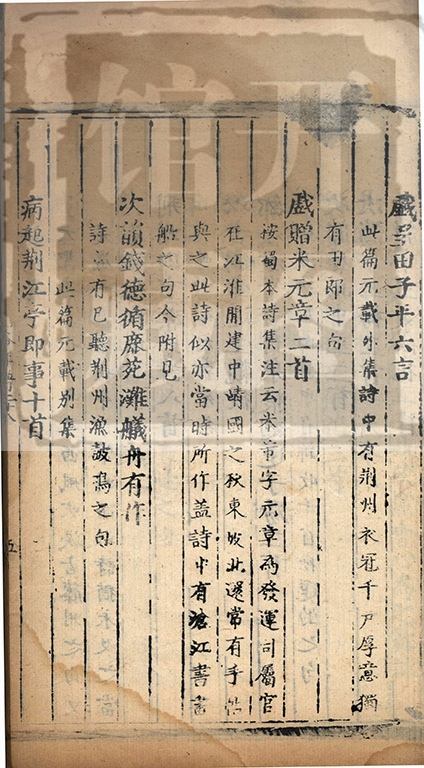 戲呈田子平六言
此篇元載外集詩中有荆州衣冠千戸厚意獨
有田郎之句
戲贈米元章二首
按蜀本詩集注云米芾字元章為發運司屬官
在江淮間建中靖國之秋東坡北還嘗有手帖
與之此詩似亦當時所作蓋詩中有滄江書畫
船之句今附見
次韻錢德循鹿苑灘艤舟有作
詩有已聽荆州漁鼓鳴之句
此篇元載別集
病起荆江亭即事十首
五